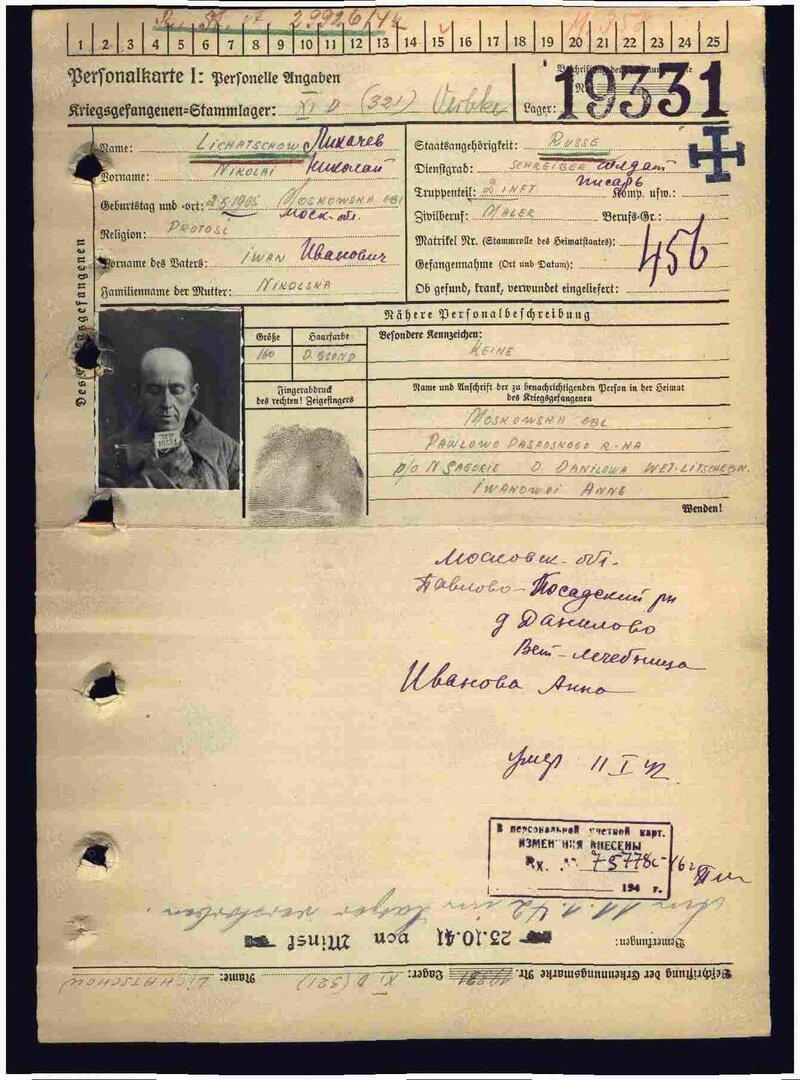 1 2 3 4 5 6 7 8 9 10 11 12 13 14 15 16 17 18 19 20 21 22 23 24 25
Personalkarte I: Personelle Angaben
Kriegsgefangenen-Stammlager: XI D (321)
Lager:
19331
Des Kriegsgefangenen
Name: LICHATSCHOW Лихачев
Vorname: NIKOLAI Николай
Geburtstag und -ort: MOSKOWSKA OBL
Моск. обл.
Religion:
Vorname des Vaters: IWAN Иванович
Familienname der Mutter: NIKOLSKA
Staatsangehörigkeit: RUSSE
Dienstgrad: SCHREIBER солдат
писарь
Truppenteil: 2 INFT Komp. usw.:
Zivilberuf: MALER Berufs-Gr.:
Matrikel Nr. (Stammrolle des Heimatstaates):
456
Gefangennahme (Ort und Datum):
Ob gesund, krank, verwundet eingeliefert:
Nähere Personalbeschreibung
Größe Haarfarbe
160 D. BLOND
Besondere Kennzeichen:
KEINE
Fingerabdruck
des rechten! Zeigefingers
Name und Anschrift der zu benachrichtigenden Person in der Heimat
des Kriegsgefangenen
MOSKOWSKA OBL
PAWLOWO PASADSKOGO R-NA
P/O N SAGORIE D. DANILOWA WET-LITSCHEBN.
IWANOWOI ANNE
Wenden!
Московск. обл.
Павлово-Посадский рн
д Данилово
Вет-лечебница
Иванова Анна
умер 11 I 42
В персональной учетной карт.
ИЗМЕНЕНИЯ ВНЕСЕНЫ
Вх. №
194 г.
Am 11.1.42 im Lager verstorben.
25.10.41 von Minsk
Bemerkungen:
Beschriftung der Erkennungsmarke Nr. 19331 Lager: XI D (321) Name: LICHATSCHOW